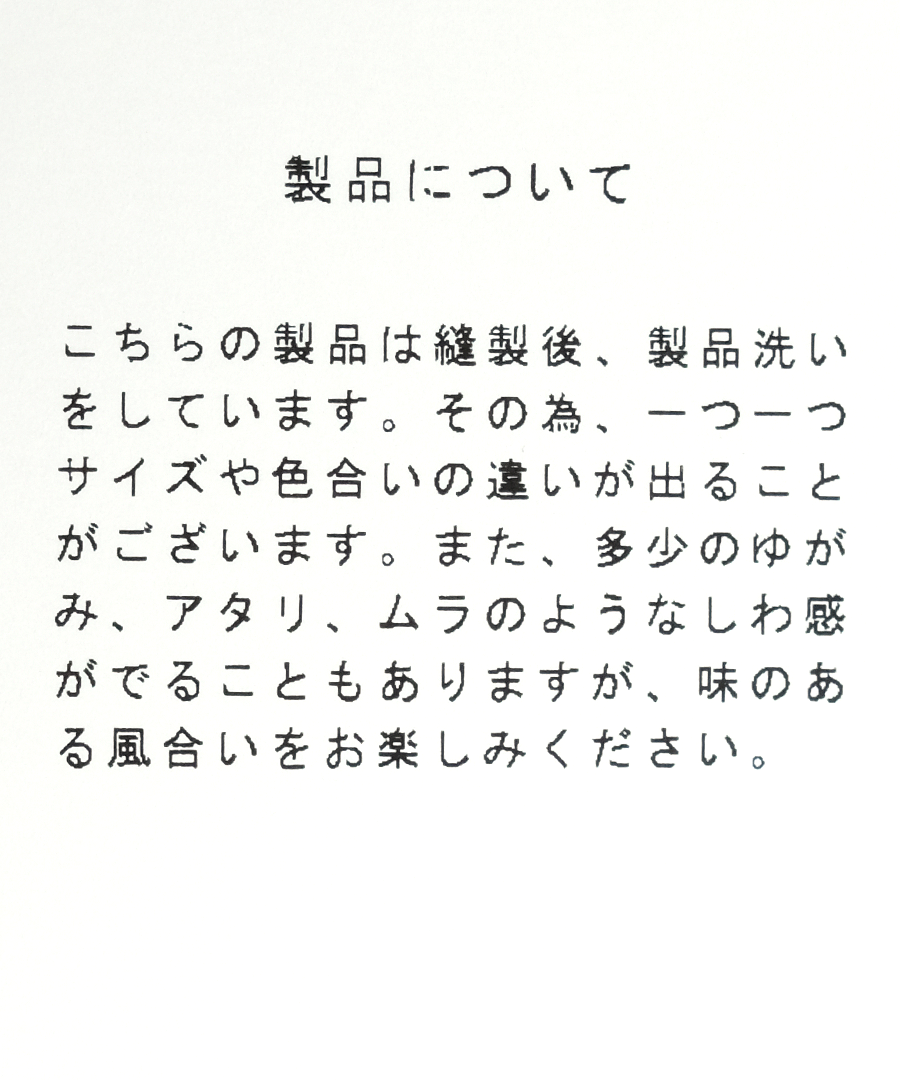 製品について
こちらの製品は縫製後、製品洗い
をしています。その為、一つ一つ
サイズや色合いの違いが出ること
がございます。また、多少のゆが
み、アタリ、ムラのようなしわ感
がでることもありますが、味のあ
る風合いをお楽しみください。